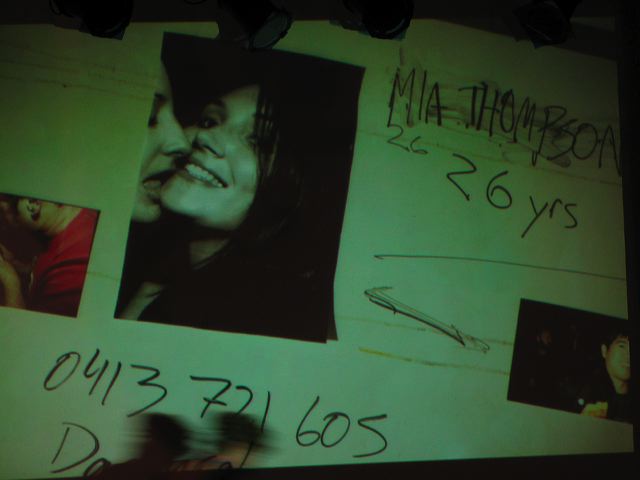 MIA THOMPSON
26
26 yrs
0413 721 605